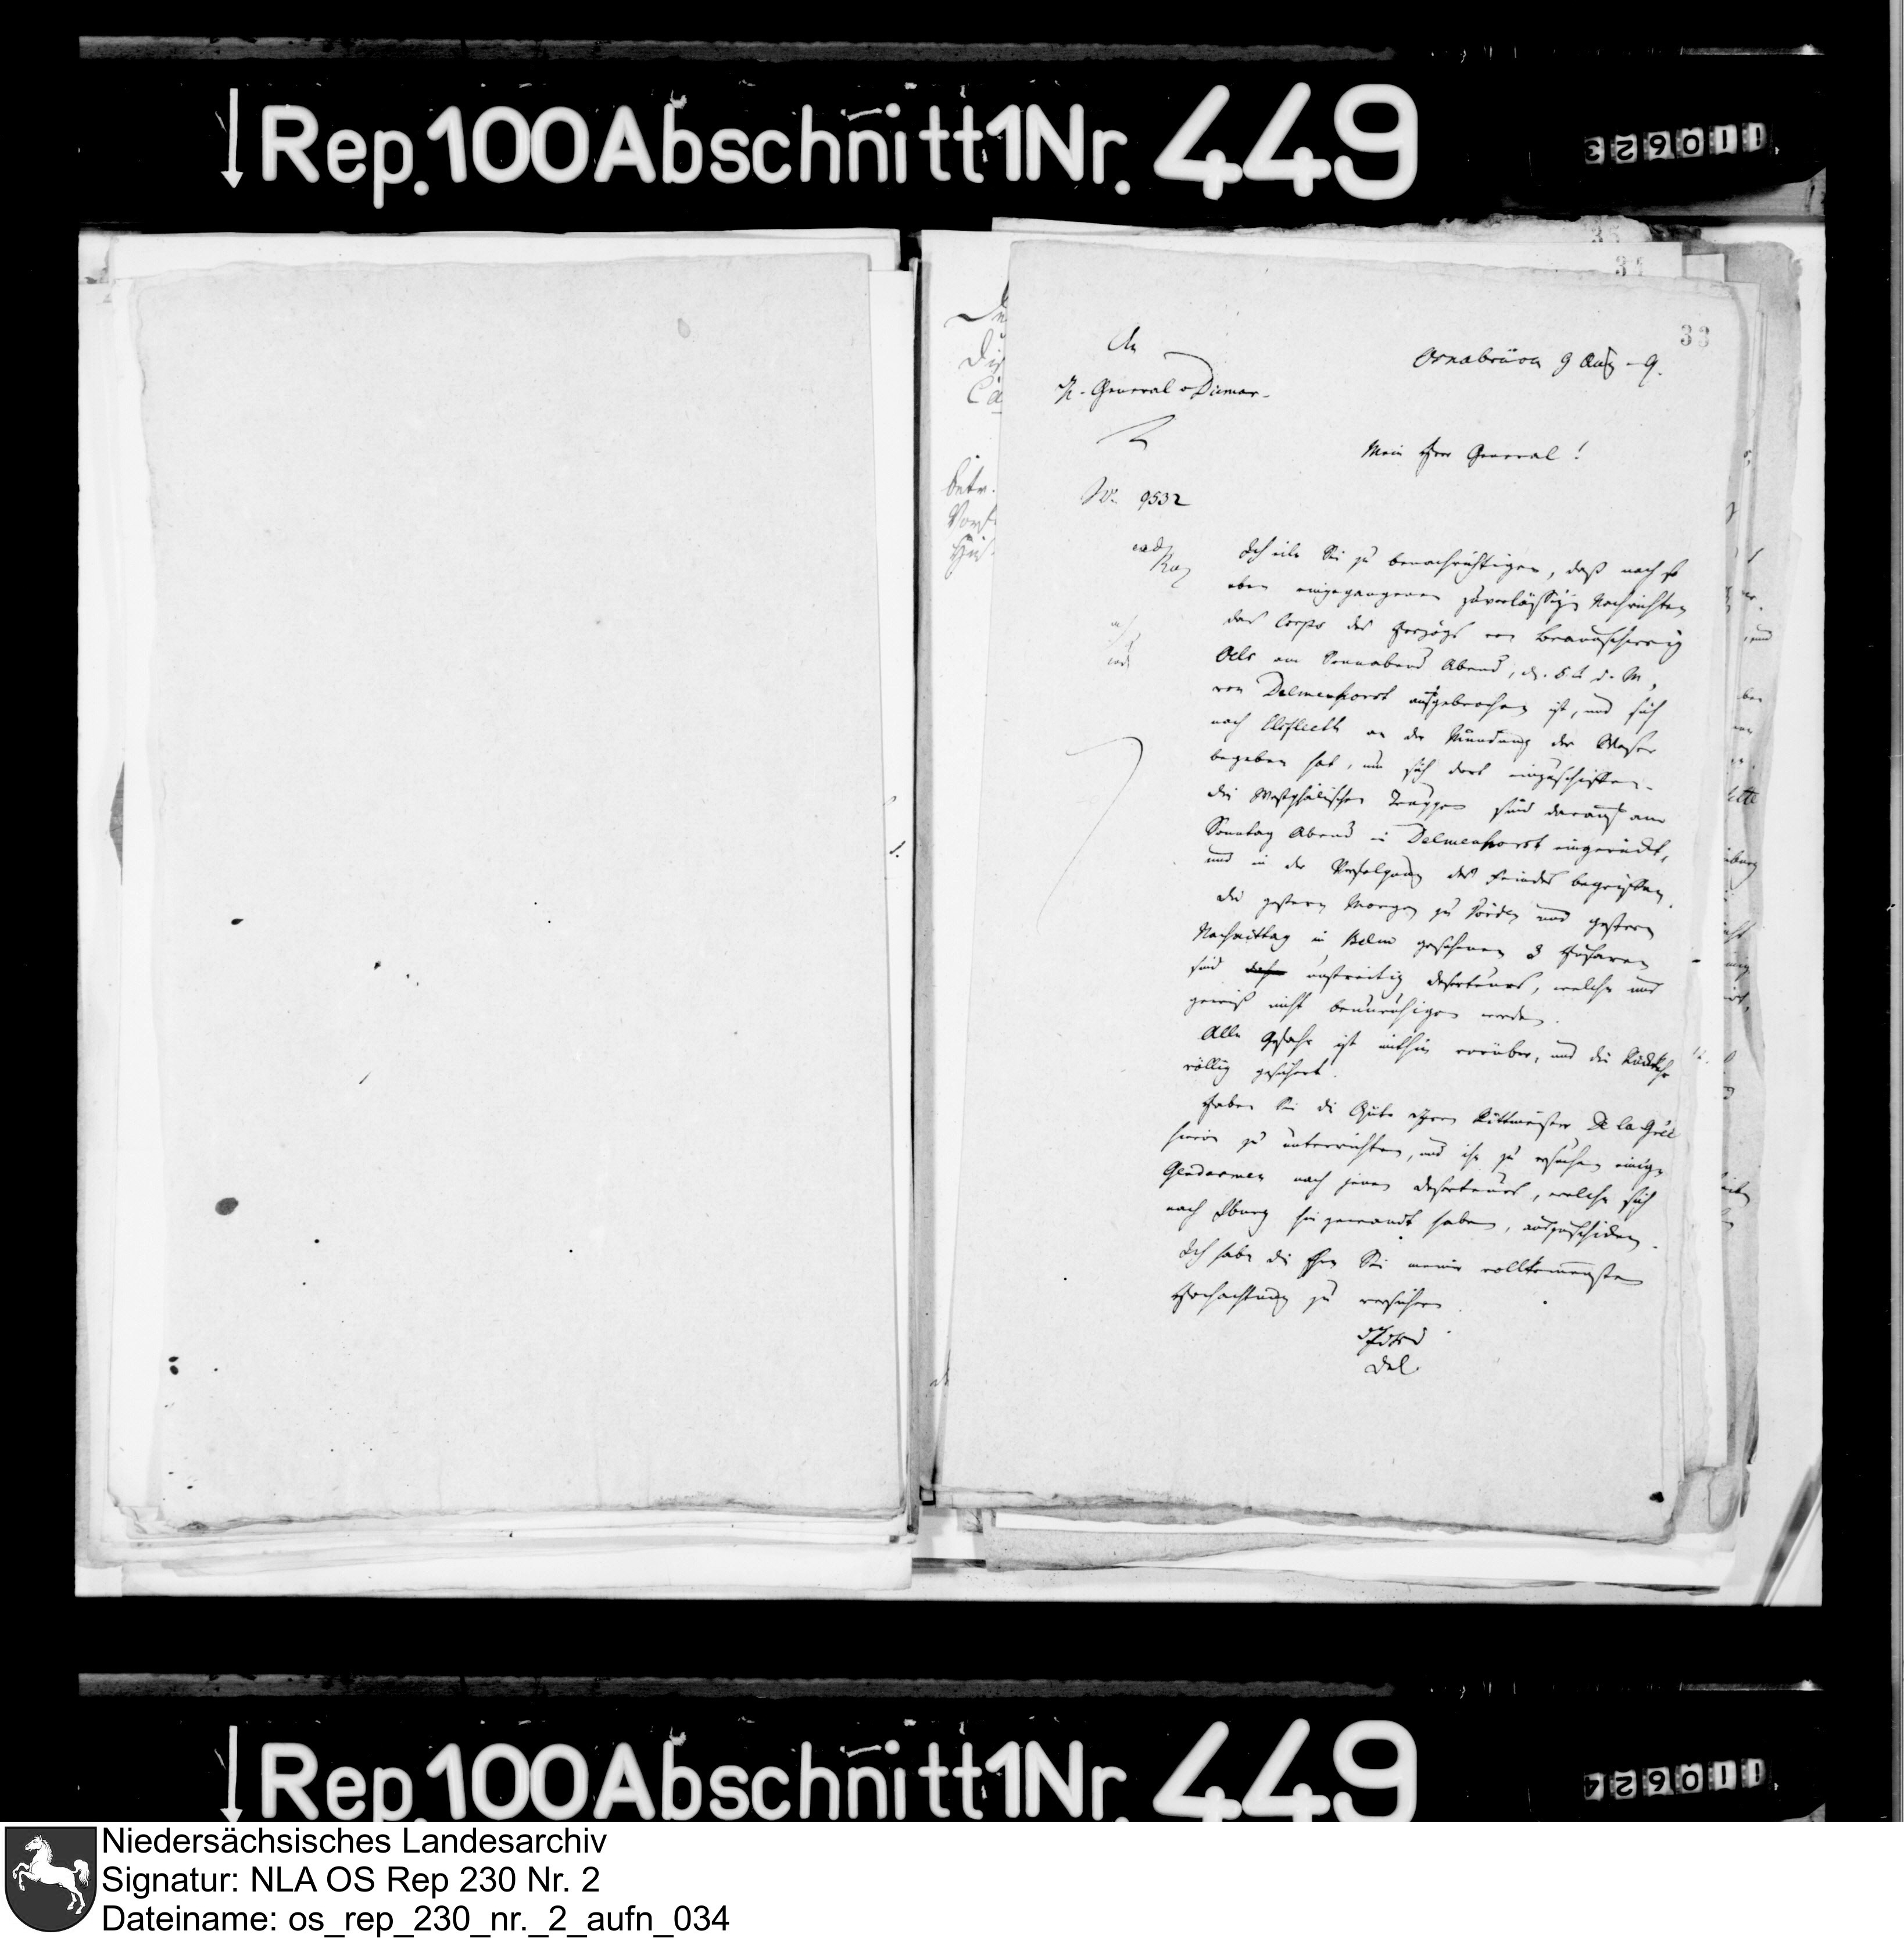 Rep.100Abschnitt1Nr.449
110623
35
34
33
An
H. General v Diemar.
Osnabrück 9 Aug –9.
Mein Herr General!
No. 9532
Ich eile Sie zu benachrichtigen, daß nach so
eben eingegangenen zuverlässigen Nachrichten
das Corps des Herzogs von Braunschweig
Oels am Sonnabend Abend, d. 5t d. M,
von Delmenhorst aufgebrochen ist, und sich
nach Elsfleth an der Mündung der Weser
begeben hat, um sich dort einzuschiffen.
Die Westphälischen Truppen sind darauf am
Sonntag Abend in Delmenhorst eingerückt,
und in der Verfolgung des Feindes begriffen.
Die gestern Morgen zu Vörden und gestern
Nachmittag in Belm gesehenen 3 Husaren
sind unstreitig Deserteurs, welche uns
gewiß nicht beunruhigen werden.
Alle Gefahr ist mithin vorüber, und die Rückkehr
völlig gesichert.
Haben Sie die Güte Herrn Rittmeister De la Grée
hievon zu unterrichten, und ihn zu ersuchen einige
Gendarmen nach jenen Deserteurs, welche sich
nach Iburg hin gewandt haben, auszuschicken.
Ich habe die Ehre Sie meiner vollkommensten
Hochachtung zu versichern.
Rep.100Abschnitt1Nr.449
110624
Niedersächsisches Landesarchiv
Signatur: NLA OS Rep 230 Nr. 2
Dateiname: os_rep_230_nr._2_aufn_034